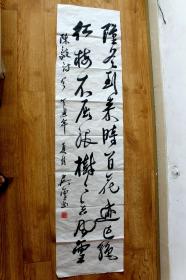 隆冬到来时百花迹已绝
红梅不屈服树树立风雪
陈毅诗 丁丑年 夏月